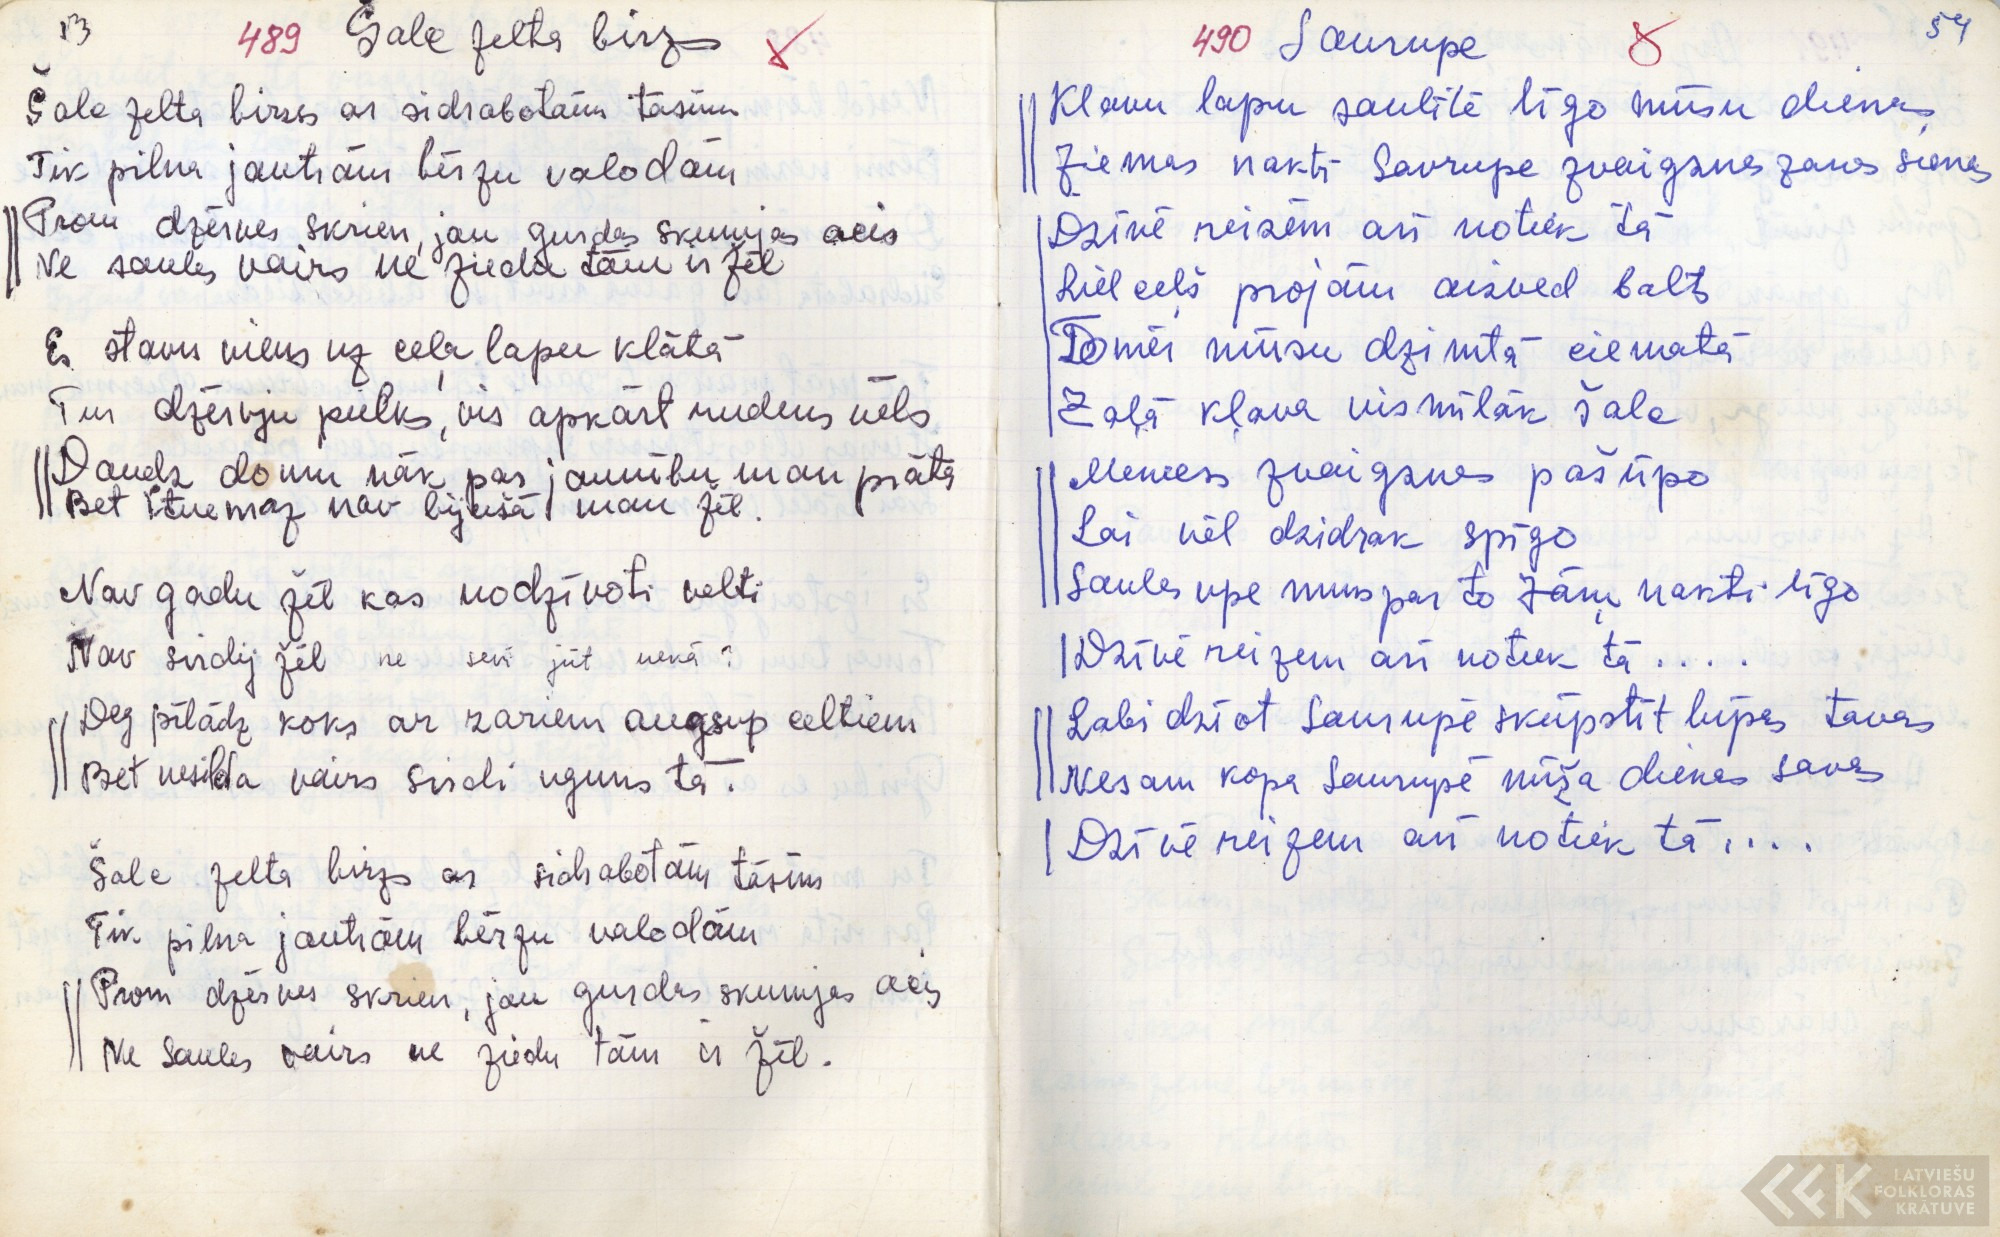 53
489 Šalc zelta birzs
Šalc zelta birzs ar sidrabotām tāsīm
Tik pilna jautrām bērzu valodām
Prom dzērves skrien, jau gurdas skumjas acis
Ne saules vairs ne ziedu tām ir žēl
Es stāvu viens uz ceļa lapu klātā
Tur dzērvju pulks, vis apkārt rudens vēls
Daudz domu nāk par jaunību man prātā
Bet itnemaz nav bijušā man žēl.
Nav gadu žēl kas nodzīvoti velti
Nav sirdij žēl ne sevī jūt nekā
Deg pīlādz koks ar zariem augšup celtiem
Bet nesilda vairs sirdi uguns tā.
Šalc zelta birzs ar sidrabotām tāsīm
Tik pilna jautrām bērzu valodām
Prom dzērves skrien, jau gurdas skumjas acis
Ne Saules vairs ne ziedu tām ir žēl.
54
490 Saurupe
Kļavu lapu saulītē līgo mūsu dienas
Ziemas naktī Saurupe zvaigznes zaros sienas
Dzīvē reizēm arī notiek tā
Lielceļš projām aizved balts
Tomēr mūsu dzimtā ciematā
Zaļā kļava vismīļāk šalc
Mēness zvaigznes pašūpo
Lai vēl dzidrāk spīgo
Saules upe mus par to Jāņu nakti līgo
Dzīvē reizem arī notiek tā.....
Labi dzīot Saurupē skūpstīt lūpas tavas
Nesam kopa Saurupē mūža dienas savas
Dzīvē reizem arī notiek tā.....
LATVIEŠU
FOLKLORAS
KRATUVE